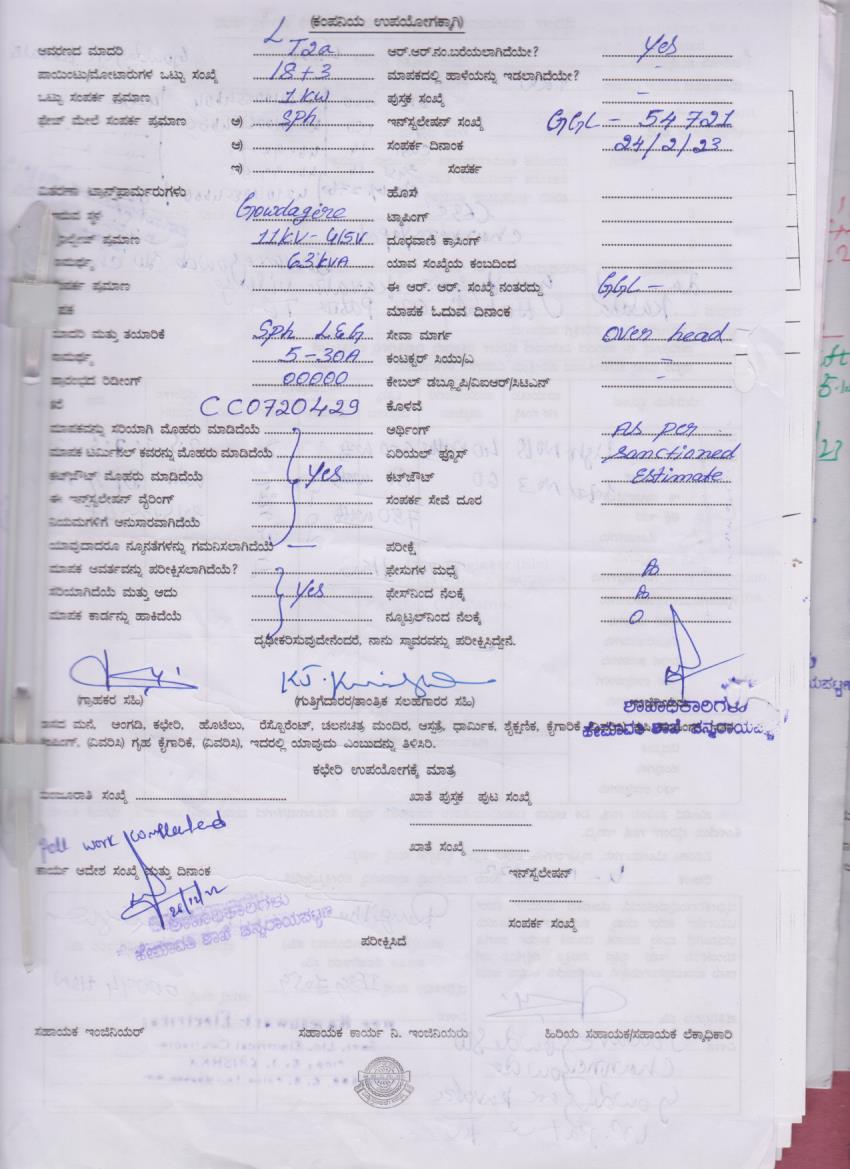 (ಕಂಪನಿಯ ಉಪಯೋಗಕ್ಕಾಗಿ)
ಆವರಣದ ಮಾದರಿ LT2a ಆರ್.ಆರ್.ನಂ.ಬರೆಯಲಾಗಿದೆಯೇ? Yes
ಪಾಯಿಂಟು/ಮೋಟಾರುಗಳ ಒಟ್ಟು ಸಂಖ್ಯೆ 18+3 ಮಾಪಕದಲ್ಲಿ ಹಾಳೆಯನ್ನು ಇಡಲಾಗಿದೆಯೇ? -
ಒಟ್ಟು ಸಂಪರ್ಕ ಪ್ರಮಾಣ 1KW ಪುಸ್ತಕ ಸಂಖ್ಯೆ -
ಫೇಜ್ ಮೇಲೆ ಸಂಪರ್ಕ ಪ್ರಮಾಣ ಅ) SPh ಇನ್‌ಸ್ಟಲೇಷನ್ ಸಂಖ್ಯೆ GGL - 54721
ಆ) ಸಂಪರ್ಕ ದಿನಾಂಕ 24/2/23
ಇ) ಸಂಪರ್ಕ
ವಿತರಣಾ ಟ್ರಾನ್ಸ್‌ಫಾರ್ಮರುಗಳು ಹೊಸ
Gowdagere ಟ್ಯಾಪಿಂಗ್
ಪ್ರಮಾಣ 11KV-415V ದೂರವಾಣಿ ಕ್ರಾಸಿಂಗ್
63KVA ಯಾವ ಸಂಖ್ಯೆಯ ಕಂಬದಿಂದ
ಪ್ರಮಾಣ ಈ ಆರ್. ಆರ್. ಸಂಖ್ಯೆ ನಂತರದ್ದು GGL -
ಮಾಪಕ ಓದುವ ದಿನಾಂಕ
ಮಾದರಿ ಮತ್ತು ತಯಾರಿಕೆ SPh L&G ಸೇವಾ ಮಾರ್ಗ Over head
5-30A ಕಂಟಕ್ಟರ್ ಸಿಯು/ಎ -
ಪ್ರಾರಂಭದ ರೀಡಿಂಗ್ 00000 ಕೇಬಲ್ ಡಬ್ಲ್ಯೂಪಿ/ಐಆರ್/ಸಿಟಿಎನ್ -
CC0720429 ಕೊಳವೆ
ಮಾಪಕವನ್ನು ಸರಿಯಾಗಿ ಮೊಹರು ಮಾಡಿದೆಯೆ ಅರ್ಥಿಂಗ್ As per
ಮಾಪಕ ಟರ್ಮಿನಲ್ ಕವರನ್ನು ಮೊಹರು ಮಾಡಿದೆಯೆ ಏರಿಯಲ್ ಫ್ಯೂಸ್ sanctioned
ಕಟ್‌ಔಟ್ ಮೊಹರು ಮಾಡಿದೆಯೆ Yes ಕಟ್‌ಔಟ್ Estimate
ಈ ಇನ್‌ಸ್ಟಲೇಷನ್ ವೈರಿಂಗ್ ಸಂಪರ್ಕ ಸೇವೆ ದೂರ
ನಿಯಮಗಳಿಗೆ ಅನುಸಾರವಾಗಿದೆಯೆ
ಯಾವುದಾದರೂ ನ್ಯೂನತೆಗಳನ್ನು ಗಮನಿಸಲಾಗಿದೆಯೆ - ಪರೀಕ್ಷೆ
ಮಾಪಕ ಆವರ್ತವನ್ನು ಪರೀಕ್ಷಿಸಲಾಗಿದೆಯೆ? ಫೇಸುಗಳ ಮಧ್ಯೆ
ಸರಿಯಾಗಿದೆಯೆ ಮತ್ತು ಅದು Yes ಫೇಸ್‌ನಿಂದ ನೆಲಕ್ಕೆ
ಮಾಪಕ ಕಾರ್ಡನ್ನು ಹಾಕಿದೆಯೆ ನ್ಯೂಟ್ರಲ್‌ನಿಂದ ನೆಲಕ್ಕೆ 0
ದೃಢೀಕರಿಸುವುದೇನೆಂದರೆ, ನಾನು ಸ್ಥಾವರವನ್ನು ಪರೀಕ್ಷಿಸಿದ್ದೇನೆ.
(ಗ್ರಾಹಕರ ಸಹಿ) (ಗುತ್ತಿಗೆದಾರರ/ತಾಂತ್ರಿಕ ಸಲಹೆಗಾರರ ಸಹಿ)
ಶಾಖಾಧಿಕಾರಿಗಳು
ಹೇಮಾವತಿ ಶಾಖೆ ಚನ್ನರಾಯಪಟ್ಟಣ
ಮನೆ, ಅಂಗಡಿ, ಕಛೇರಿ, ಹೊಟೆಲು, ರೆಸ್ಟೋರೆಂಟ್, ಚಲನಚಿತ್ರ ಮಂದಿರ, ಆಸ್ಪತ್ರೆ, ಧಾರ್ಮಿಕ, ಶೈಕ್ಷಣಿಕ, ಕೈಗಾರಿಕೆ
(ವಿವರಿಸಿ) ಗೃಹ ಕೈಗಾರಿಕೆ, (ವಿವರಿಸಿ), ಇದರಲ್ಲಿ ಯಾವುದು ಎಂಬುದನ್ನು ತಿಳಿಸಿರಿ.
ಕಛೇರಿ ಉಪಯೋಗಕ್ಕೆ ಮಾತ್ರ
ಮಂಜೂರಾತಿ ಸಂಖ್ಯೆ ಖಾತೆ ಪುಸ್ತಕ ಪುಟ ಸಂಖ್ಯೆ
work completed
ಖಾತೆ ಸಂಖ್ಯೆ
ಕಾರ್ಯ ಆದೇಶ ಸಂಖ್ಯೆ ಮತ್ತು ದಿನಾಂಕ ಇನ್‌ಸ್ಟಲೇಷನ್
26/12/22
ಶಾಖಾಧಿಕಾರಿಗಳು
ಹೇಮಾವತಿ ಶಾಖೆ ಚನ್ನರಾಯಪಟ್ಟಣ
ಸಂಪರ್ಕ ಸಂಖ್ಯೆ
ಪರೀಕ್ಷಿಸಿದೆ
ಸಹಾಯಕ ಇಂಜಿನಿಯರ್ ಸಹಾಯಕ ಕಾರ್ಯ ನಿ. ಇಂಜಿನಿಯರು ಹಿರಿಯ ಸಹಾಯಕ/ಸಹಾಯಕ ಲೆಕ್ಕಾಧಿಕಾರಿ